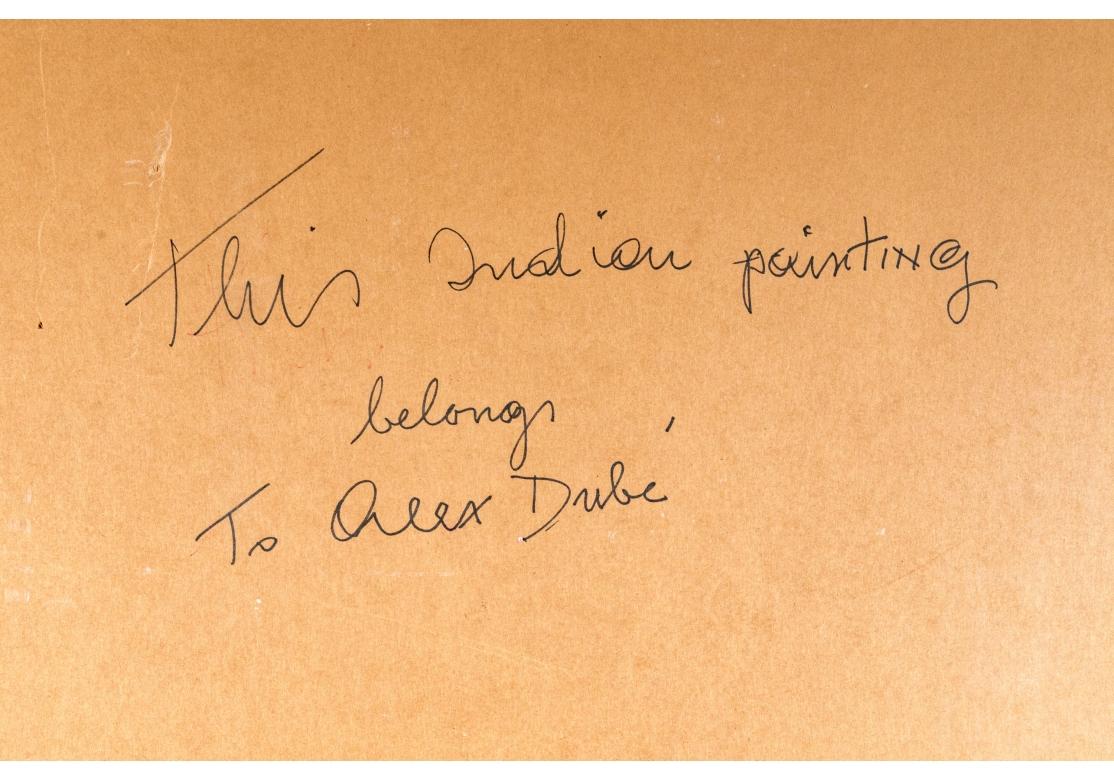 This Indian painting
belongs
To Alex Dubé